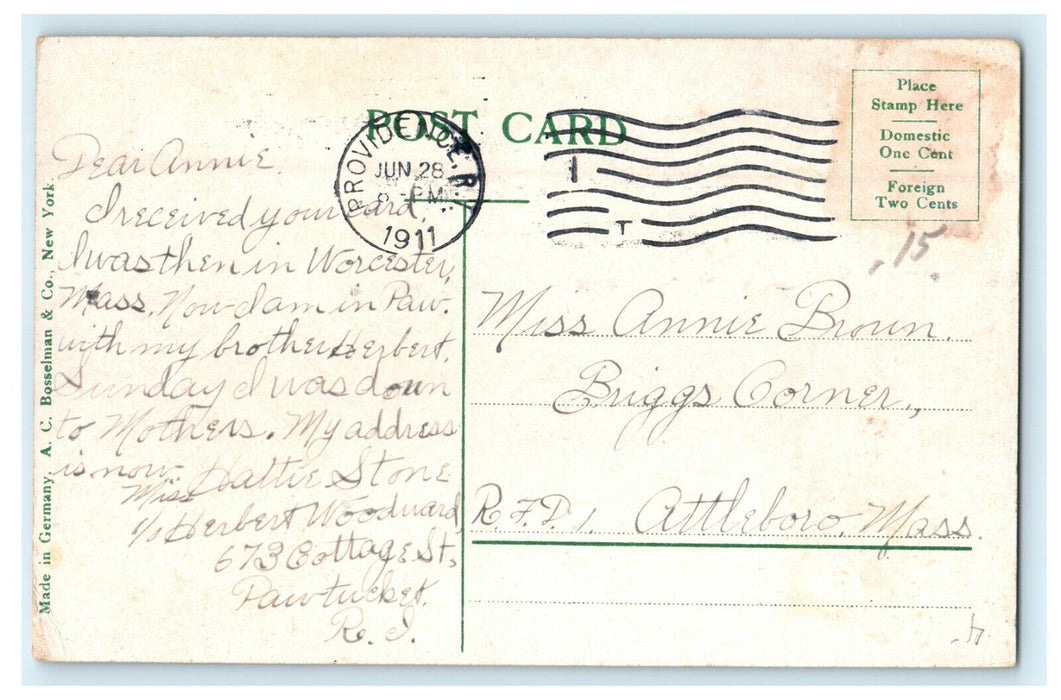 POST CARD
PROVIDENCE, R.
JUN 28
PM
1911
1
T
Place
Stamp Here
Domestic
One Cent
Foreign
Two Cents
.15
Made in Germany. A. C. Bosselman & Co., New York.
Dear Annie
I received your card,
I was then in Worcester,
Mass. Now I am in Paw.
with my brother Herbert.
Sunday I was down
to Mothers. My address
is now-
Miss Hattie Stone
c/o Herbert Woodward
673 Cottage St.,
Pawtucket,
R. I.
Miss Annie Brown.
Briggs Corner,,
R.F.D. 1. Attleboro, Mass.